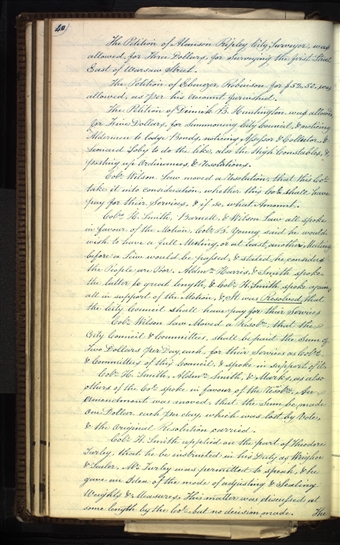 40
The Petition of Alanson Ripley City Surveyor, was
allowed, for Three Dollars, for surveying the first Street
East of Warsaw Street.
The Petition of Ebenezer Robinson, for $52.52, was
allowed, as per his account furnished.
The Petition of Dimick B. Huntington, was allowed,
for Nine Dollars, for summoning City Council, & notifying
Aldermen to lodge Bonds, notifying Assessor & Collector, &
Leonard Soby to do the like, also the High Constables, &
posting up Ordinances, & Resolutions.
Cor. Wilson Law moved a Resolution that this Col.
take it into consideration whether this Col. shall have
pay for their services, & if so, what Amount.
Cors. H. Smith, Barnett, & Wilson Law all spoke
in favour of the Motion. Cor. B. Young said he would
wish to have a full Meeting, or at least, another Meeting
before a Law would be passed, & stated he considered
the People are Poor. Aldmn. Harris, & Smith spoke,
the latter to great length, & Cor. H. Smith spoke again,
all in support of the Motion, & It was Resolved, that
the City Council shall have pay for their Services
Cor. Wilson Law Moved a Resoln. that the
City Council & Committees, shall be paid the sum of
Two Dollars per Day, each, for their services as Cors.
& Committees of this Council, & spoke in support of it.
Cor. H. Smith, Aldmn. Smith, & Marks, as also
others of the Col. spoke in favour of the Resoln. An
amendment was moved, that the sum be, made
one Dollar each per day, which was lost by Vote,
& the Original Resolution carried.
Cor. H. Smith applied on the part of Theodore
Turley, that he be instructed in his Duty as Weigher
& Sealer. Mr. Turley was permitted to speak, & he
gave an Idea of the mode of adjusting & Sealing
Weights & Measures. This matter was discussed at
some length by the Col. but no decision made. The